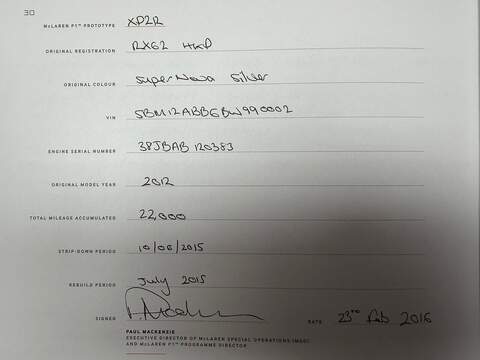 30
McLAREN P1™ PROTOTYPE XP2R
ORIGINAL REGISTRATION RX62 HKD
ORIGINAL COLOUR SuperNova Silver
VIN SBM12ABB6BW990002
ENGINE SERIAL NUMBER 38JBAB 120383
ORIGINAL MODEL YEAR 2012
TOTAL MILEAGE ACCUMULATED 22,000
STRIP-DOWN PERIOD 10/06/2015
REBUILD PERIOD July 2015
SIGNED DATE 23rd Feb 2016
PAUL MACKENZIE
EXECUTIVE DIRECTOR OF McLAREN SPECIAL OPERATIONS (MSO)
AND McLAREN P1™ PROGRAMME DIRECTOR